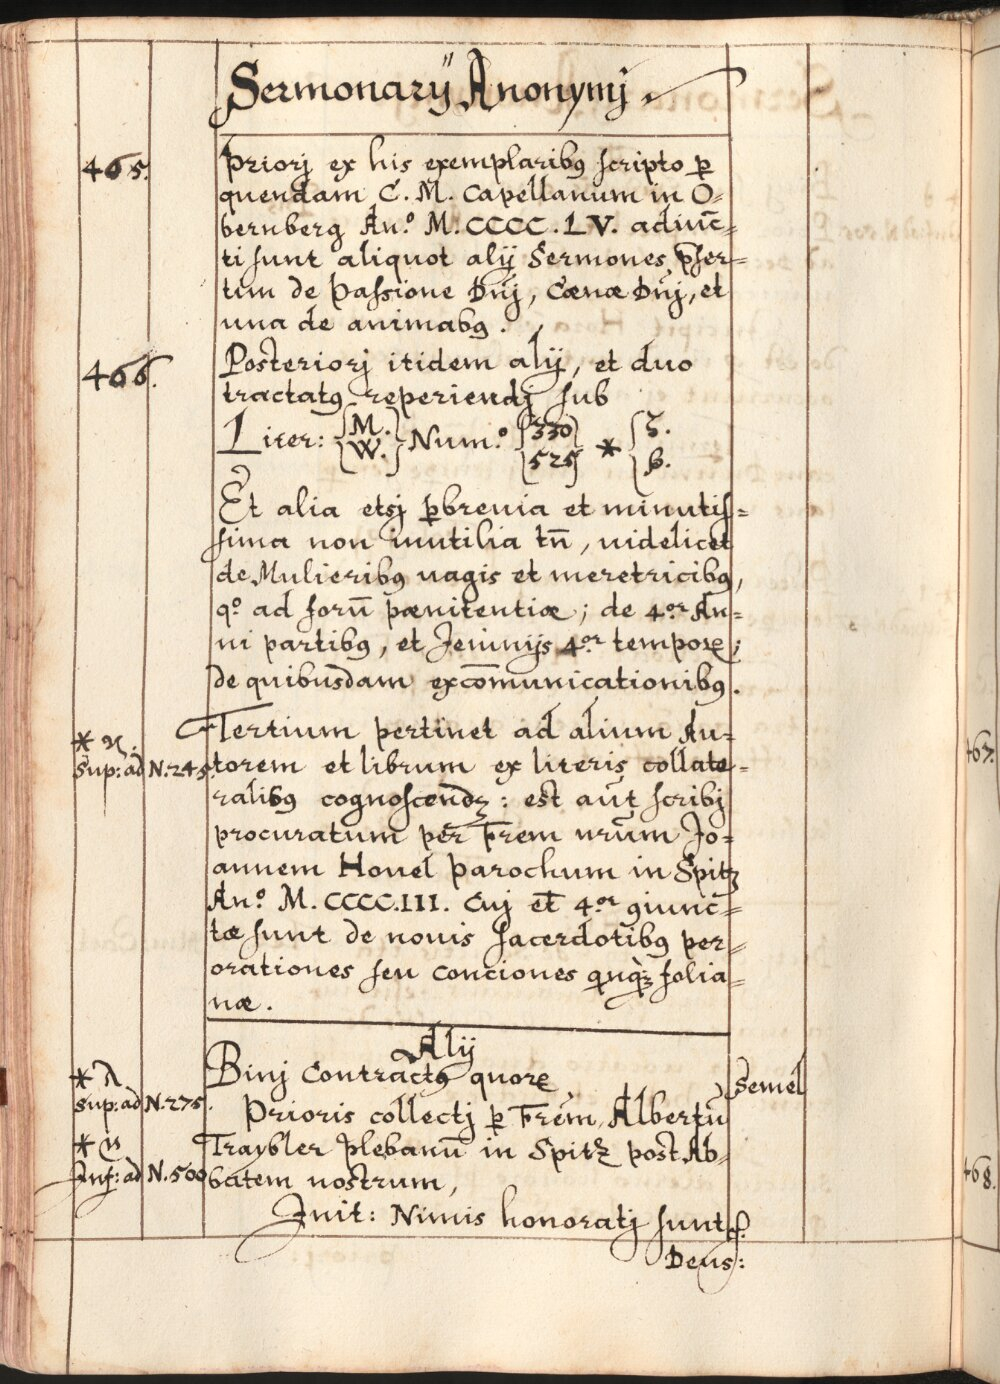 Sermonarij Anonymj.
465.
Priorj ex his exemplaribꝰ scripto ꝑ
quendam C. M. Capellanum in O=
bernberg An.º M.CCCC.LV. adiūc=
ti sunt aliquot alij Sermones, p̄ser=
tim de Passione Dn̄j, Cœnæ Dn̄j, et
una de animabꝰ.
466.
Posteriorj itidem alij, et duo
tractatꝰ reperiendj sub
Liter: {M. W.} Num.º {330 525} * {ζ. ß.
Et alia etsj ꝑbrevia et minutis=
sima non inutilia tn̄, uidelicet
de Mulieribꝰ uagis et meretricibꝰ,
qº ad forū pænitentiæ; de 4.or An=
ni partibꝰ, et Jeiunijs 4.or temporꝝ;
de quibusdam excōmunicationibꝰ.
* n.
Sup: ad N. 245.
Tertium pertinet ad alium Au=
torem et librum ex literis collate=
ralibꝰ cognoscendꝫ: est aūt scribj
procuratum per Frēm nrūm Jo=
annem Hovel Parochum in Spitz
An.º M.CCCC.III. Cuj et̄ 4.or ꝯiunc=
tæ sunt de nouis Sacerdotibꝰ per=
orationes seu conciones qnq̄ꝫ folia=
næ.
Alij
Binj Contractꝰ quorꝝ
Semel
* λ
Sup: ad N. 275.
Prioris collectj ꝑ Frēm Albertū
* n
Inf: ad N. 500
Traybler Plebanū in Spitz post Ab=
batem nostrum,
Init: Nimis honoratj sunt ꝭ.
Deus:
467.
468.